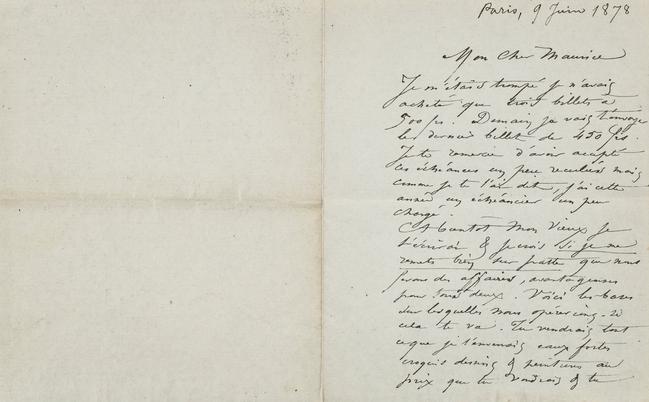 Paris, 9 Juin 1878
Mon cher Maurice
Je m'étais trompé je n'avais
acheté que trois billets à
500 frs. Demain je vais t'envoyer
le dernier billet de 450 frs
Je te remercie d'avoir accepté
ces échéances un peu reculées mais
comme je te l'ai dit, j'ai cette
année un échéancier un peu
chargé.
A bientôt mon vieux je
t'écrirai & je crois si je me
remets bien sur patte que nous
ferons des affaires, avantageuses
pour tous deux. Voici les bases
sur lesquelles nous opérerons si
cela te va. Tu vendrais tout
ce que je t'enverrais eaux fortes
croquis dessins & peintures au
prix que tu voudrais & tu